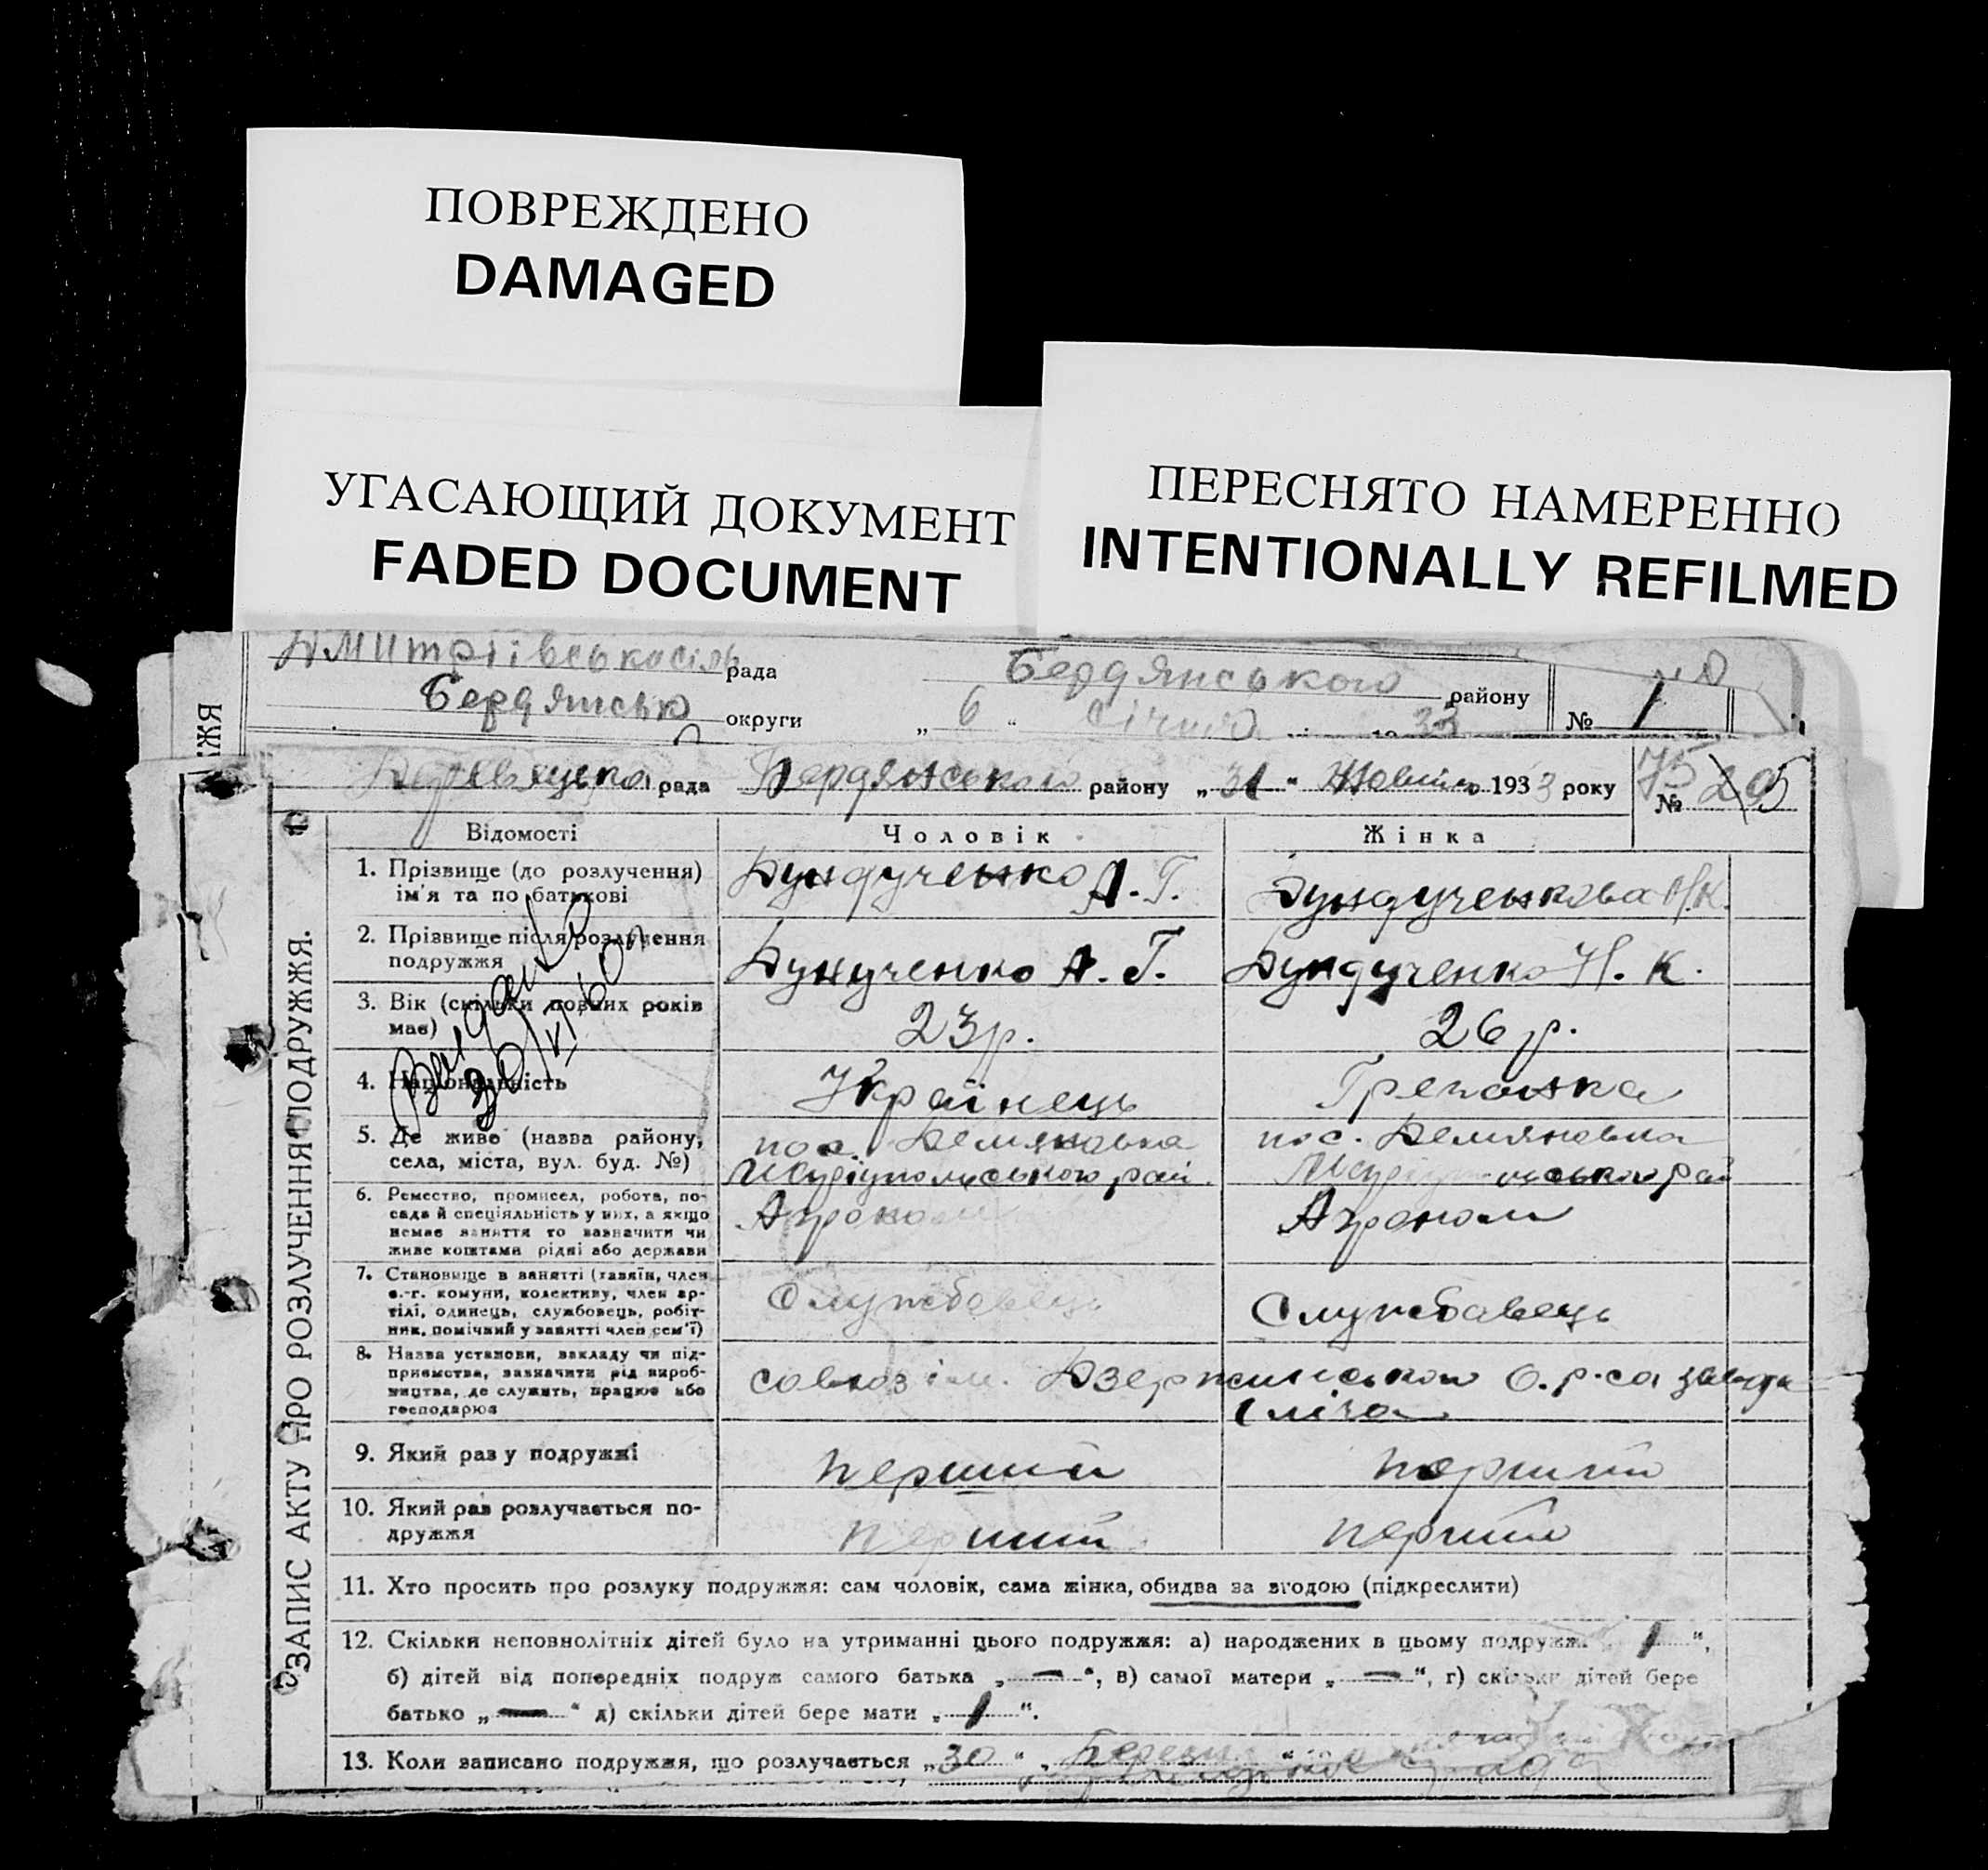 ПОВРЕЖДЕНО
DAMAGED
УГАСАЮЩИЙ ДОКУМЕНТ
FADED DOCUMENT
ПЕРЕСНЯТО НАМЕРЕННО
INTENTIONALLY REFILMED
рада Бердянського району
округи „ 6 “ Січня 33 № 1
рада Бердянського району „ 31 “ Жовтня 1933 року № 20
75
ЗАПИС АКТУ ПРО РОЗЛУЧЕННЯ ПОДРУЖЖЯ.
Відомості Чоловік Жінка
1. Прізвище (до розлучення) ім'я та по батькові Дундученко А. Г. Дундученкова Н. К.
2. Прізвище після розлучення подружжя Дунученко А. Г. Дундученко Н. К.
3. Вік (скільки повних років має) 23 р. 26 р.
4. Національність Українець Гречанка
5. Де живе (назва району, села, міста, вул. буд. №) пос. Демяновка Маріупольського рай. пос. Демяновка рай
6. Ремество, промисел, робота, посада й спеціяльність у них, а якщо немає заняття то зазначити чи живе коштами рідні або держави Агроном Агроном
7. Становище в занятті (хазяїн, член с.-г. комуни, колективу, член артілі, одинець, службовець, робітник, помічний у занятті член сем'ї) Службовець Службавець
8. Назва установи, закладу чи підприємства, зазначити рід виробництва, де служить, працює або господарює совхоз ім. Дзержинського О.р.са завода Іліча
9. Який раз у подружжі перший перший
10. Який раз розлучається подружжя перший перший
11. Хто просить про розлуку подружжя: сам чоловік, сама жінка, обидва за згодою (підкреслити)
12. Скільки неповнолітніх дітей було на утриманні цього подружжя: а) народжених в цьому подружжі „ 1 “,
б) дітей від попередніх подруж самого батька „ — “, в) самої матери „ — “, г) скільки дітей бере
батько „ — “ д) скільки дітей бере мати „ 1 “.
13. Коли записано подружжя, що розлучається „ 30 “